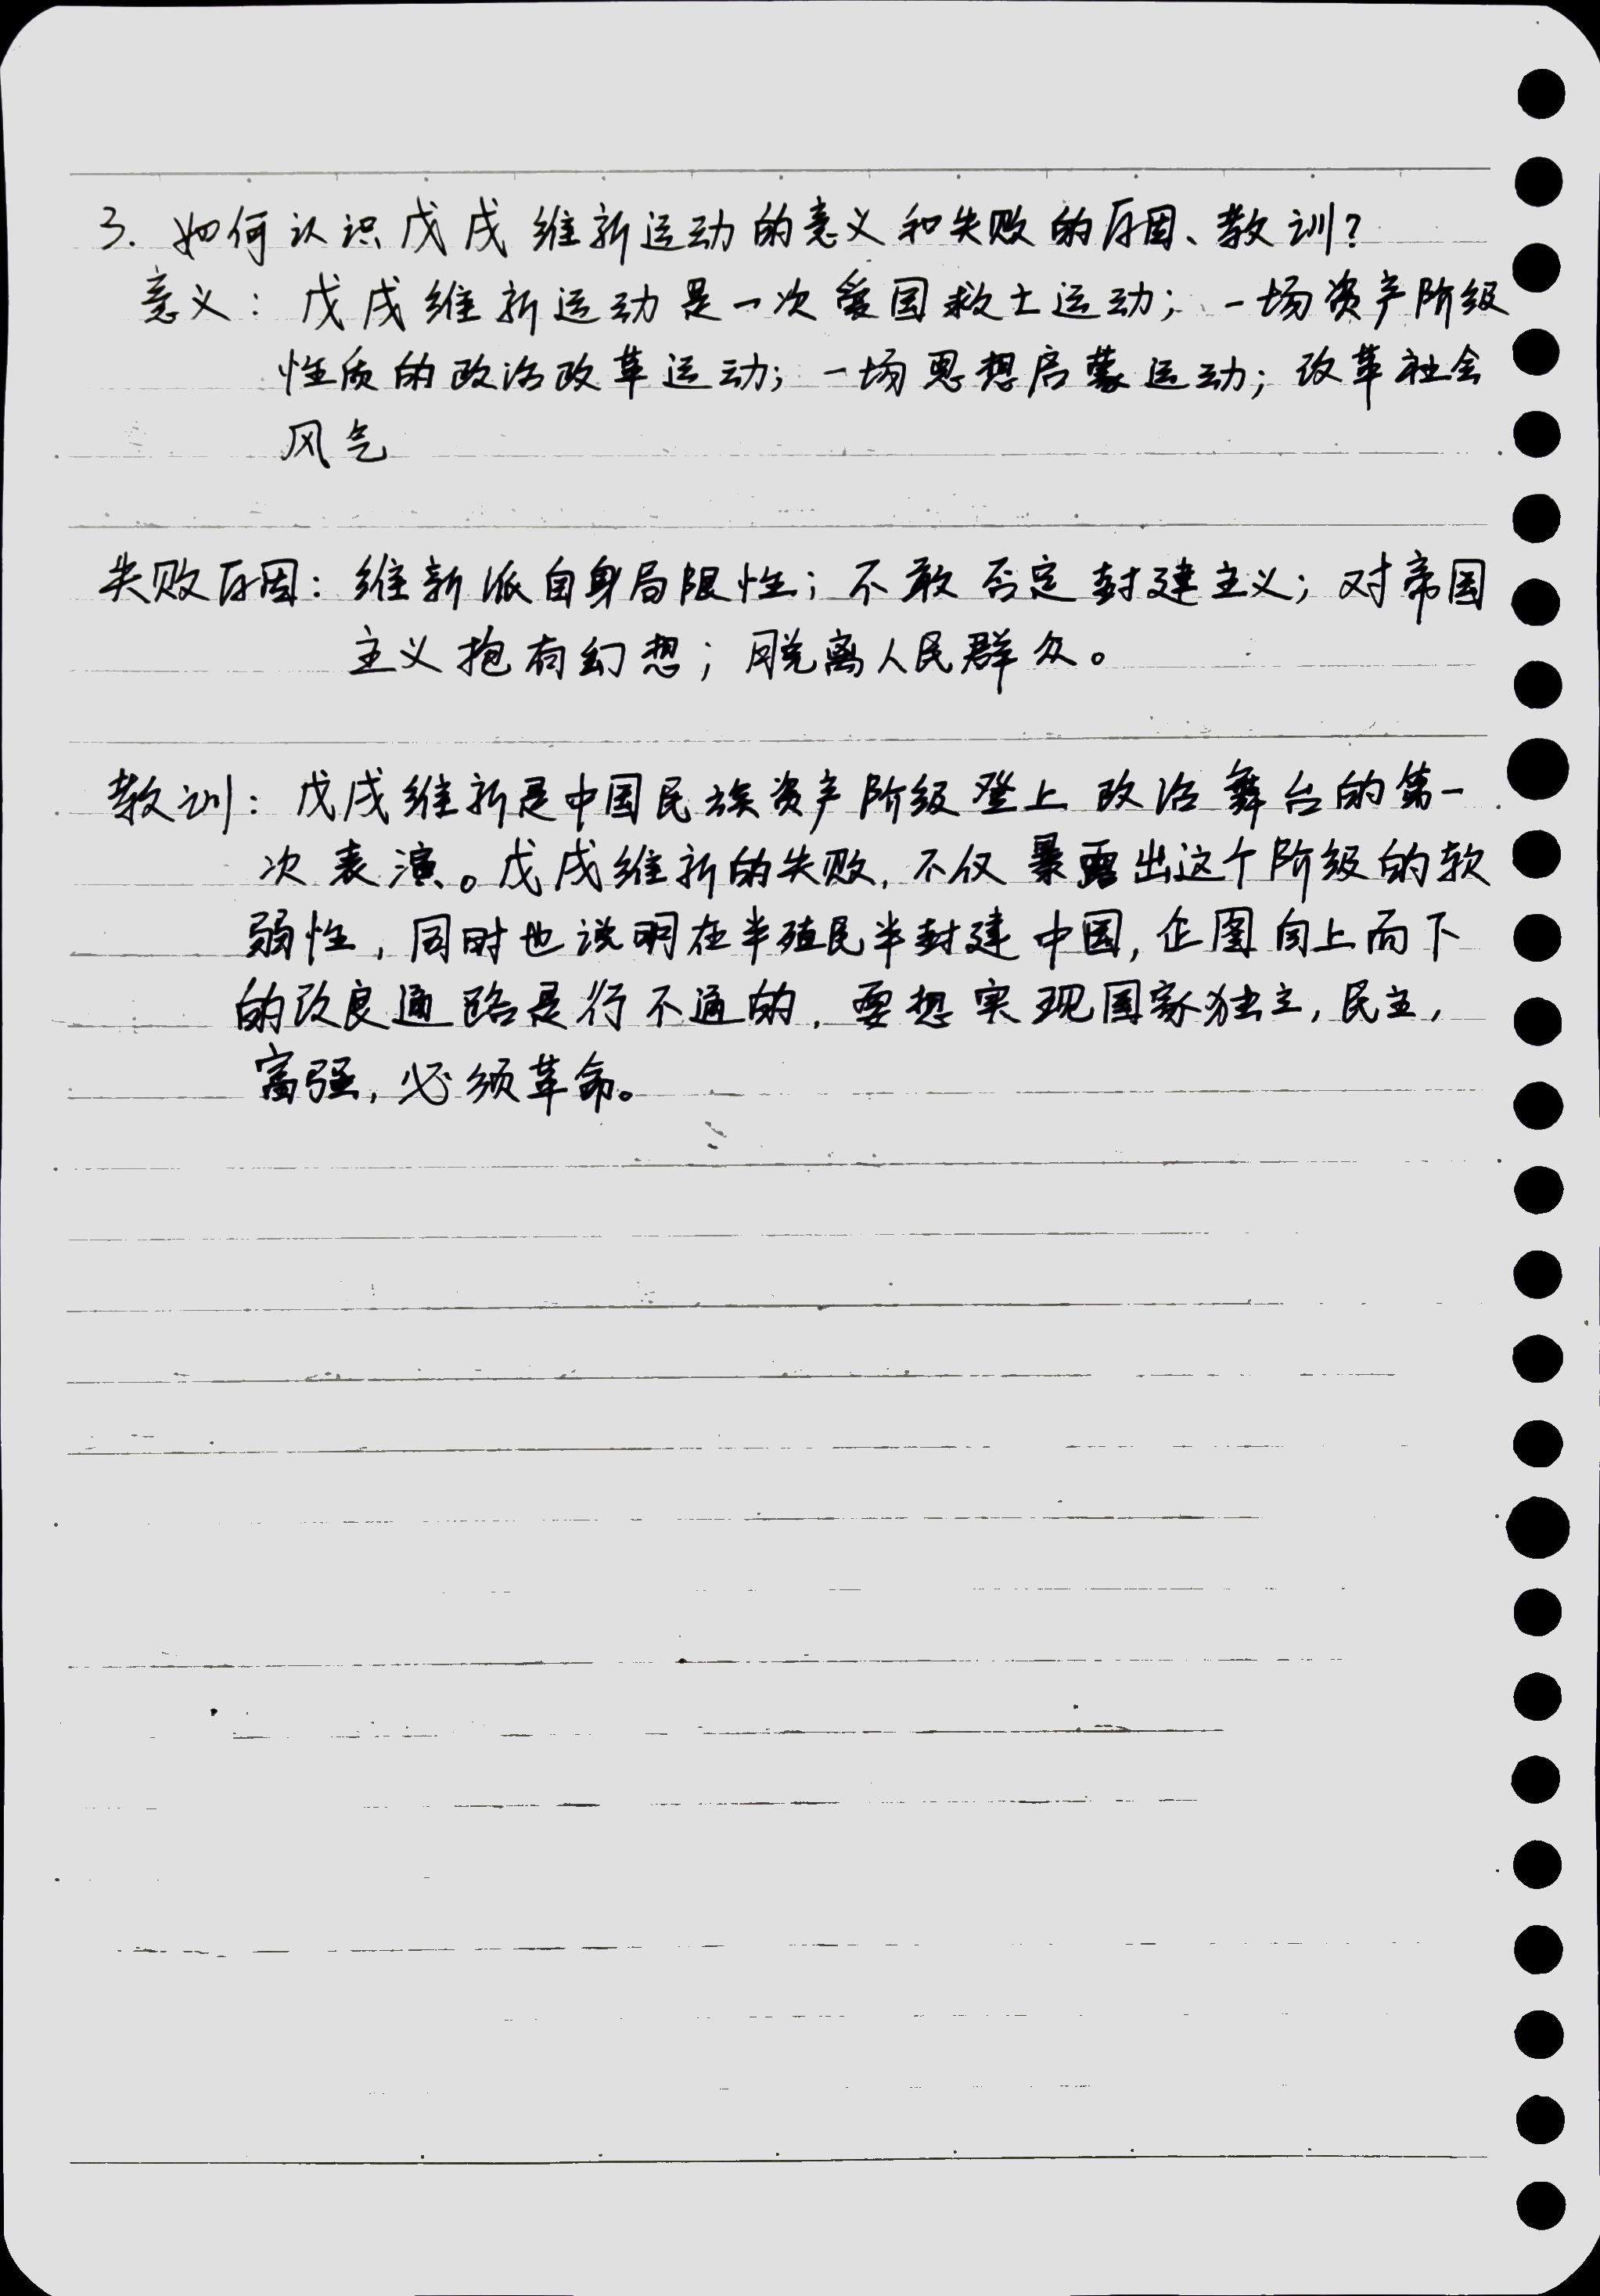 3. 如何认识戊戌维新运动的意义和失败的原因、教训?
意义: 戊戌维新运动是一次爱国救亡运动; 一场资产阶级
性质的政治改革运动; 一场思想启蒙运动; 改革社会
风气
失败原因: 维新派自身局限性; 不敢否定封建主义; 对帝国
主义抱有幻想; 脱离人民群众。
教训: 戊戌维新是中国民族资产阶级登上政治舞台的第一
次表演。戊戌维新的失败, 不仅暴露出这个阶级的软
弱性, 同时也说明在半殖民半封建中国, 企图自上而下
的改良通路是行不通的, 要想实现国家独立, 民主,
富强, 必须革命。